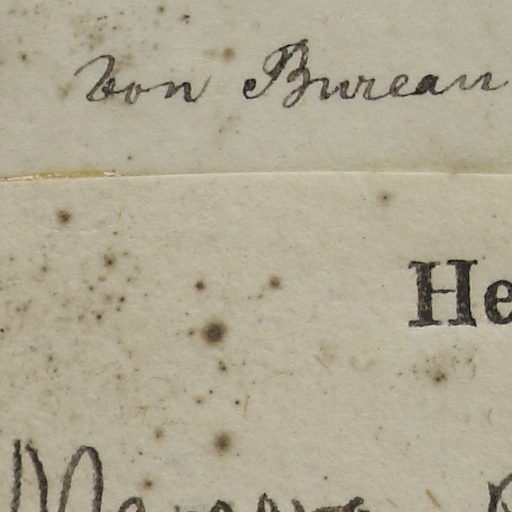 Von Bureau
He